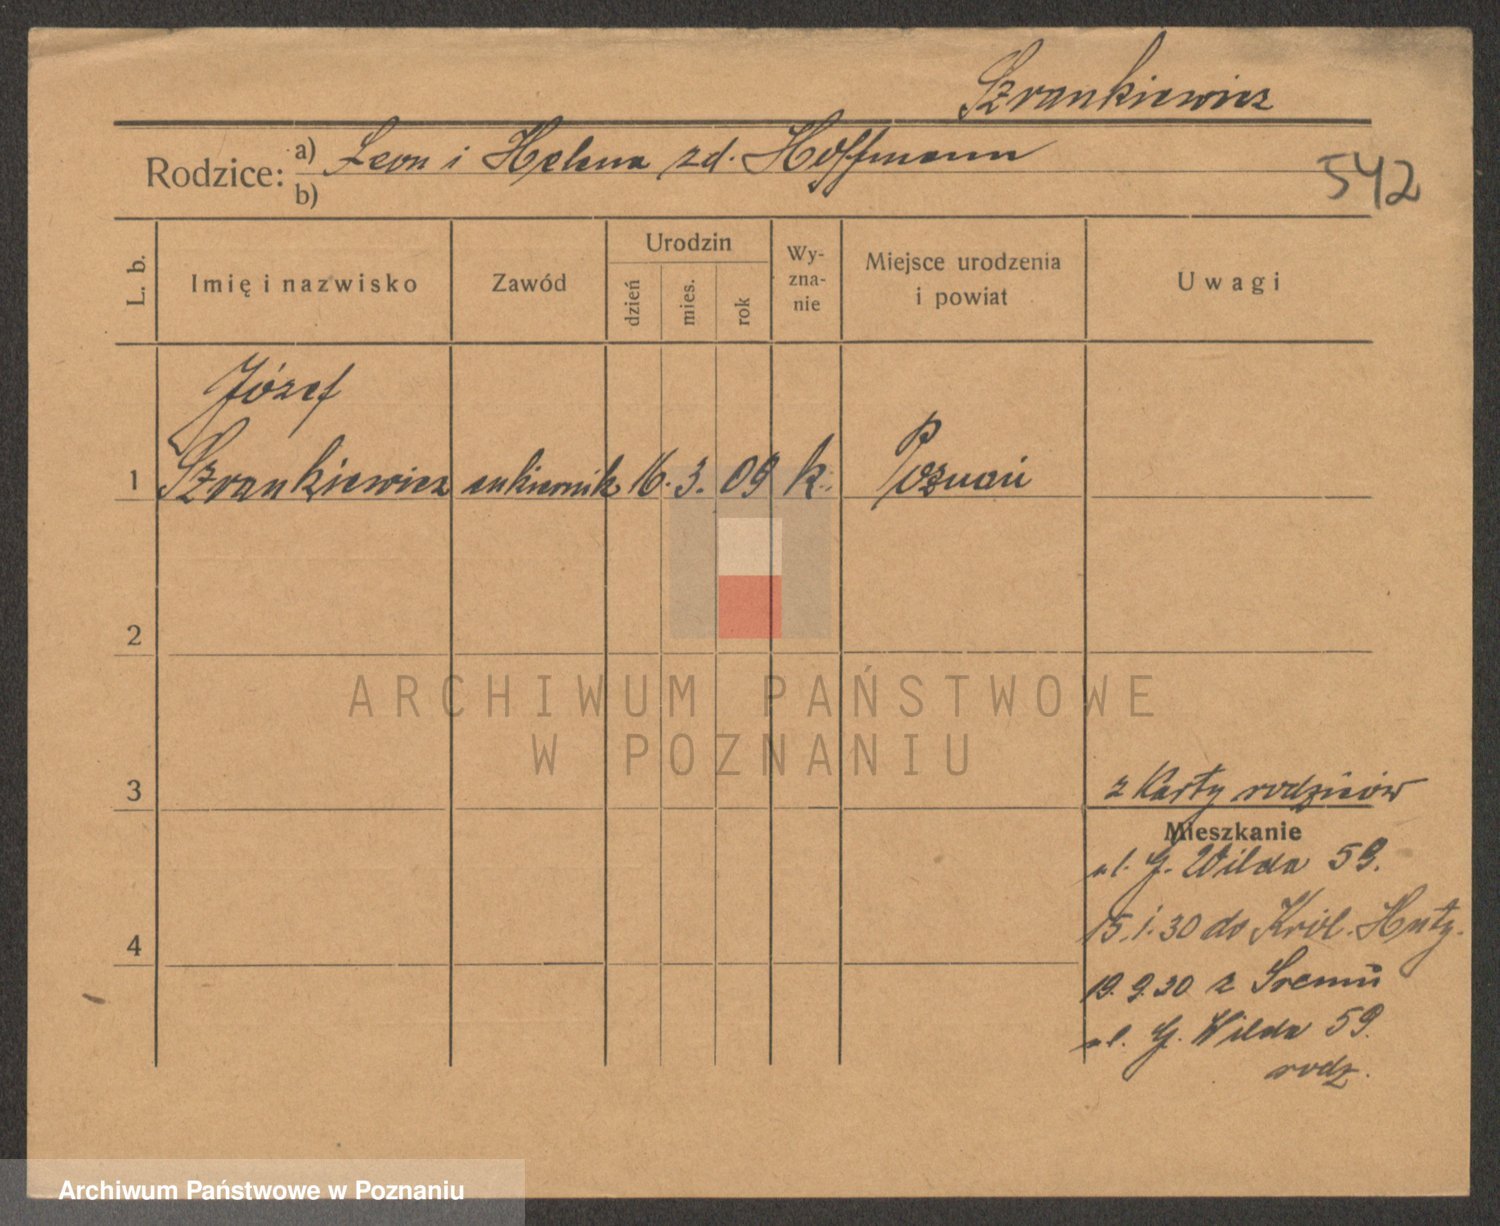 Szrankiewicz
Rodzice: a) Leon i Helena zd. Hoffmann
b)
542
L. b.
Imię i nazwisko
Zawód
Urodzin
dzień
mies.
rok
Wy-
zna-
nie
Miejsce urodzenia
i powiat
Uwagi
Józef
1 Szrankiewicz cukiernik 16. 3. 09 k. Poznań
2
ARCHIWUM PAŃSTWOWE
W POZNANIU
3
z Karty rodziców
Mieszkanie
ul. G. Wilda 59.
4
15.1.30 do Król. Huty.
19.9.30 z Sremu
ul. G. Wilda 59.
rodz.
Archiwum Państwowe w Poznaniu